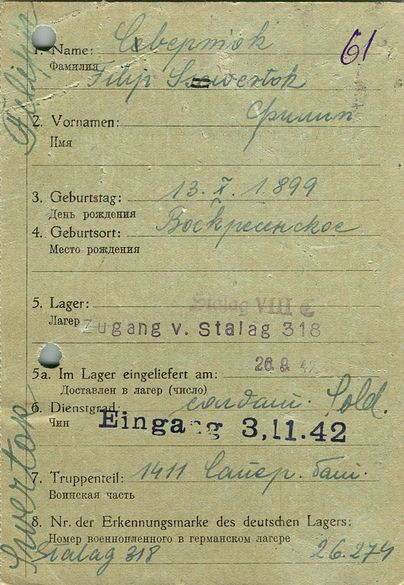 61
1. Name: Северток
Фамилия Filip Ssewertok
2. Vornamen: Филип
Имя
3. Geburtstag: 13. X. 1899
День рождения
4. Geburtsort: Воскресинское
Место рождения
5. Lager: Stalag VIII C
Лагер Zugang v. Stalag 318
5a. Im Lager eingeliefert am: 26.9.42
Доставлен в лагер (число)
6. Dienstgrad: солдат. Sold.
Чин Eingang 3.11.42
7. Truppenteil: 1411 Сапер. бат.
Воинская часть
8. Nr. der Erkennungsmarke des deutschen Lagers:
Номер военнопленного в германском лагере
Stalag 318 26.274